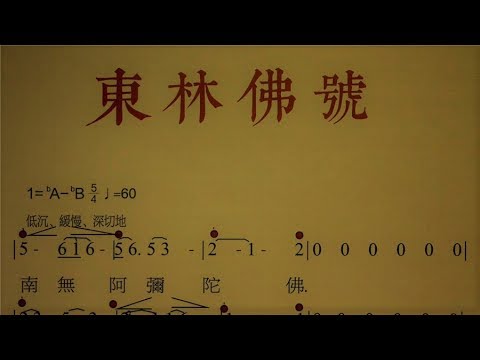 東林佛號
1=ᵇA-ᵇB 5/4 ♩=60
低沉、緩慢、深切地
|5 - 6 1 6 - |5 6. 5 3 - |2 - 1 - 2|0 0 0 0 0|
南 無 阿 彌 陀 佛.